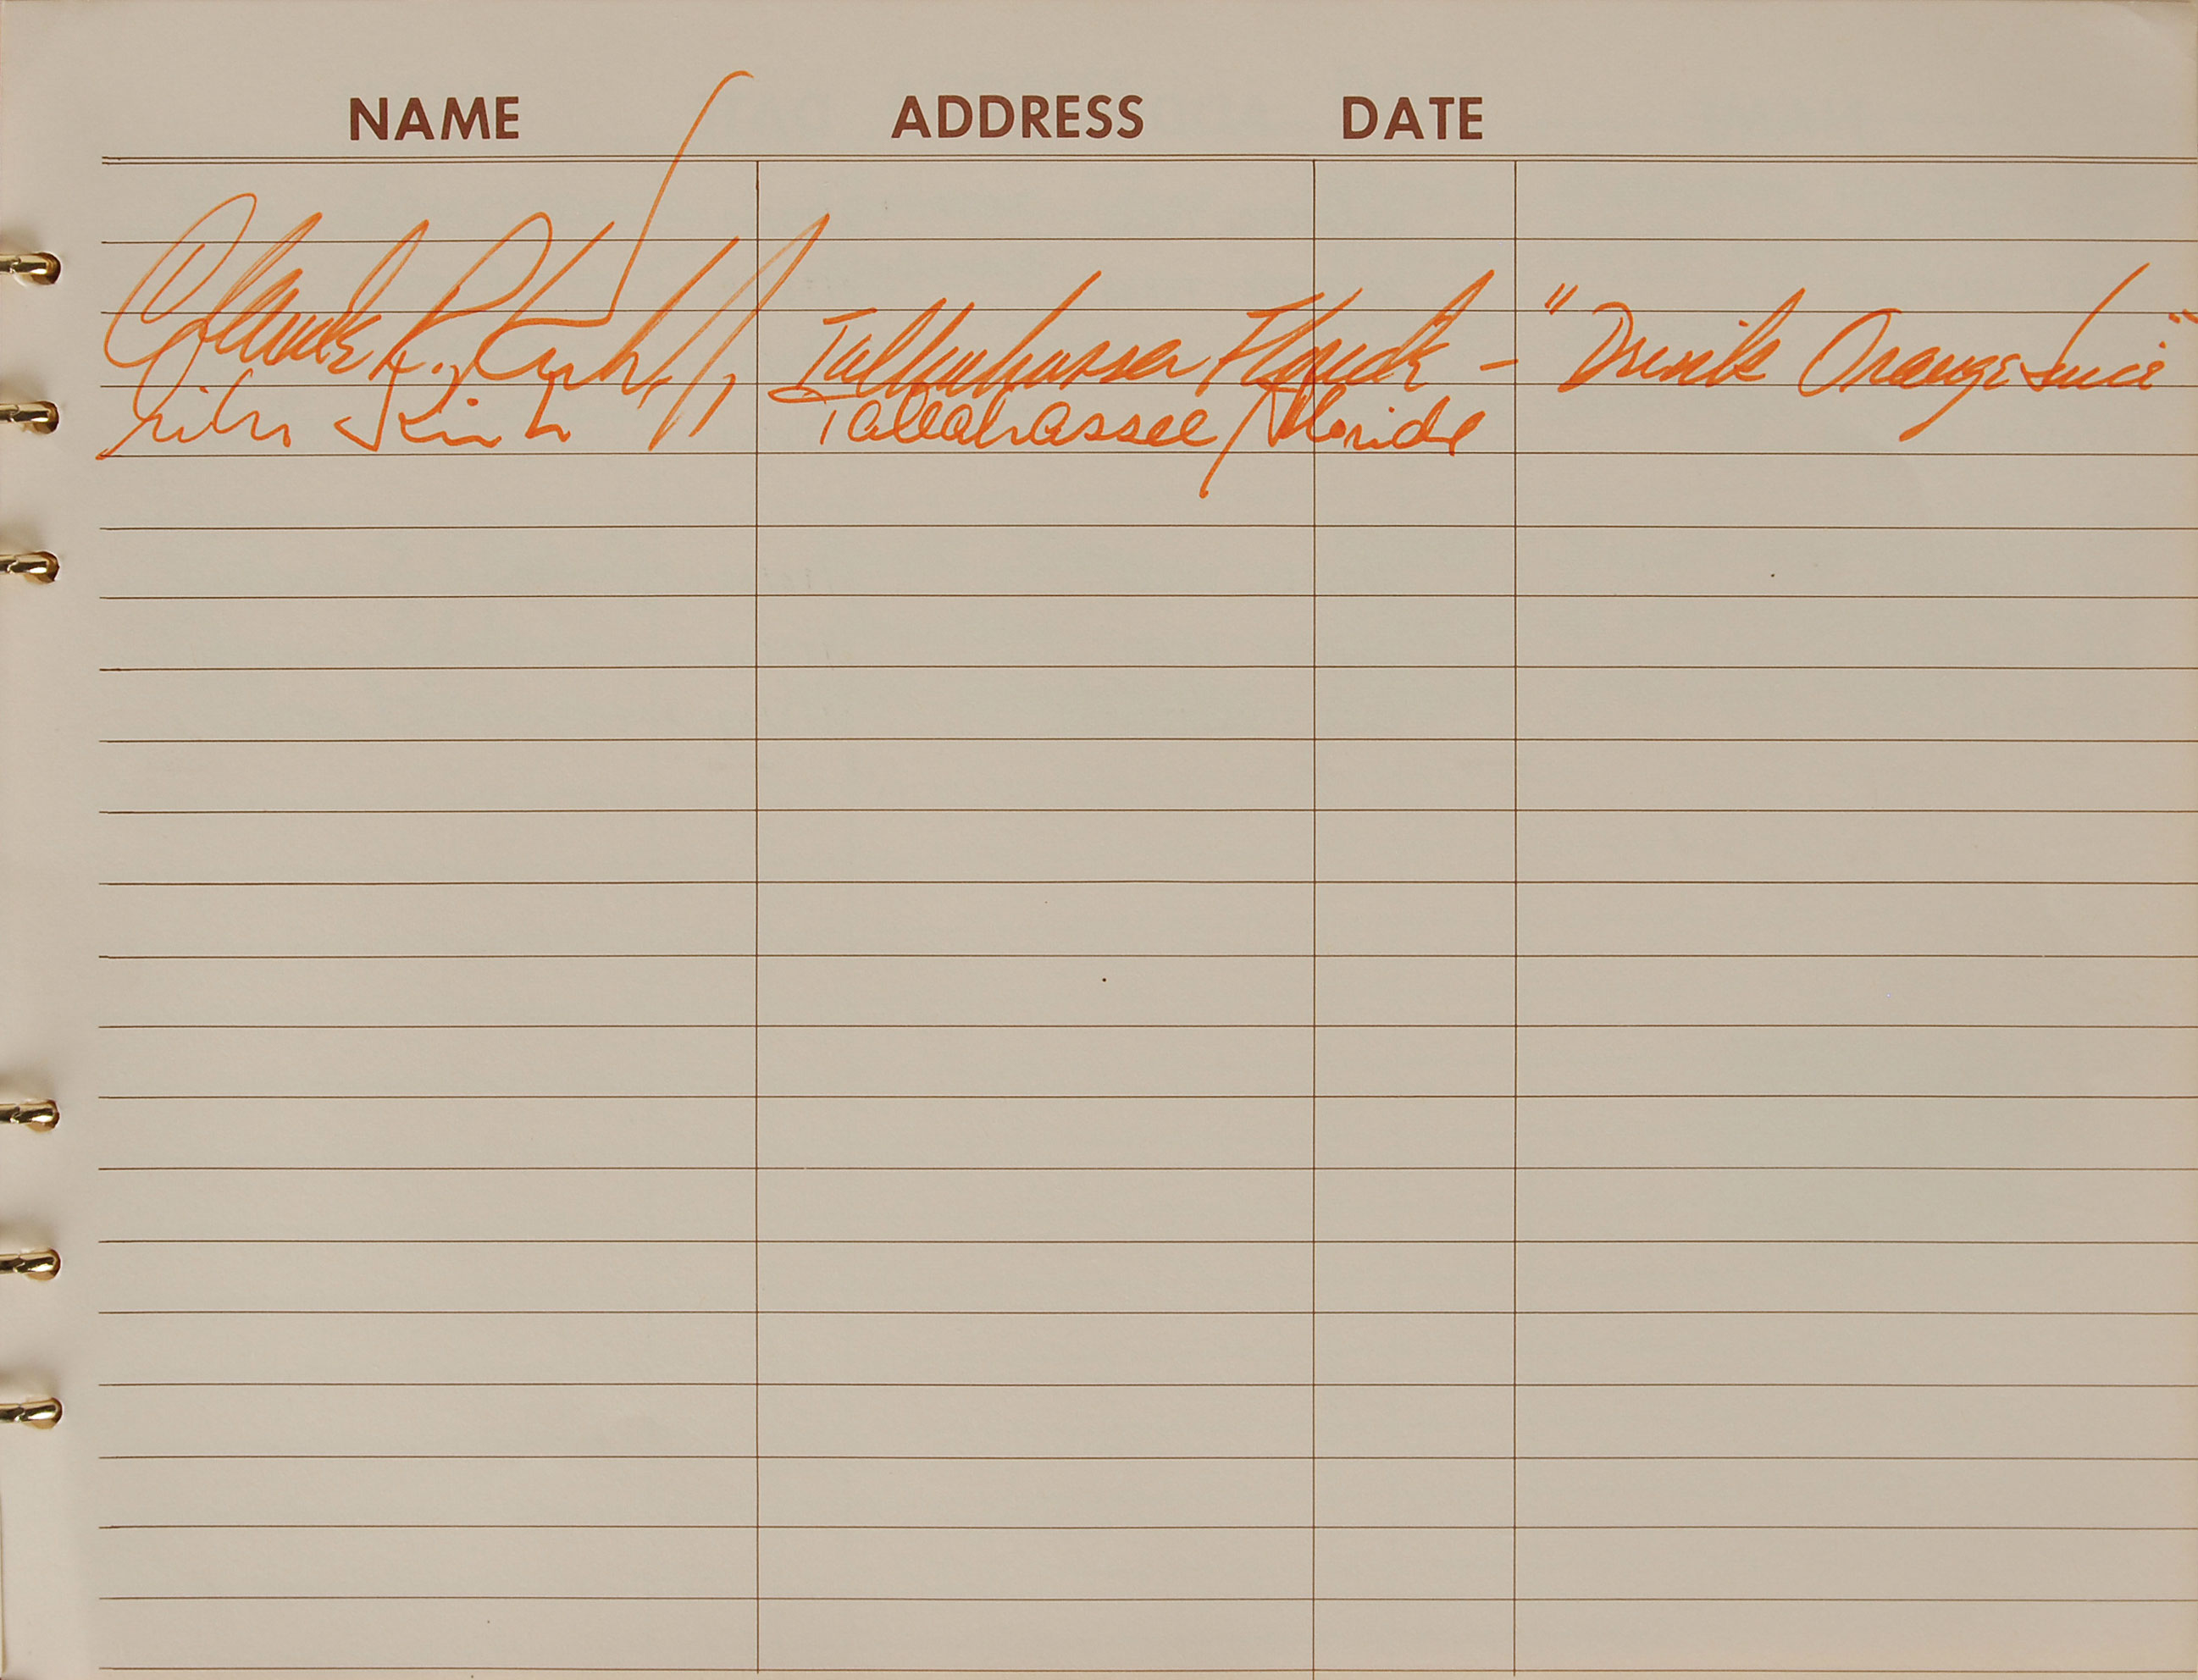 NAME ADDRESS DATE
Claude R. Kirk, Jr. Tallahassee Florida - "Drink Orange Juice"
Kirk Tallahassee, Florida